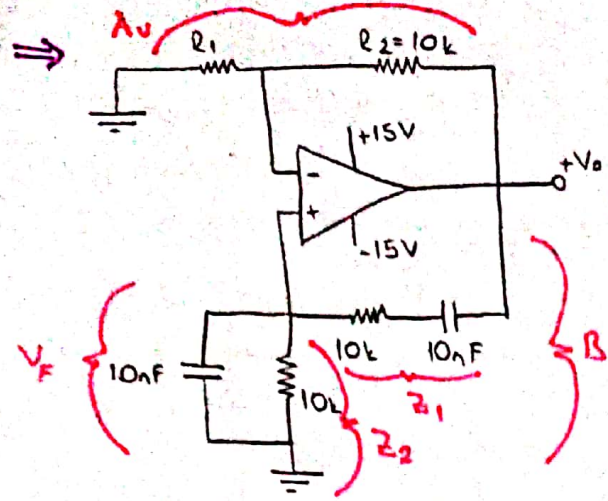 Av
R1 R2=10k
+15V
-
+
+Vo
-15V
VF 10nF 10k 10nF B
10k Z1
Z2